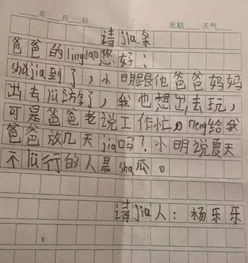 年 月 日 星期 天气
请jia条
爸爸的lingdao您好：
shujia到了，小明跟他爸爸妈妈
出去lü游了，我也想出去玩，
可是爸爸老说工作忙。neng给我
爸爸放几天jia吗？小明说夏天
不lü行的人是sha瓜。
请jia人：杨乐乐